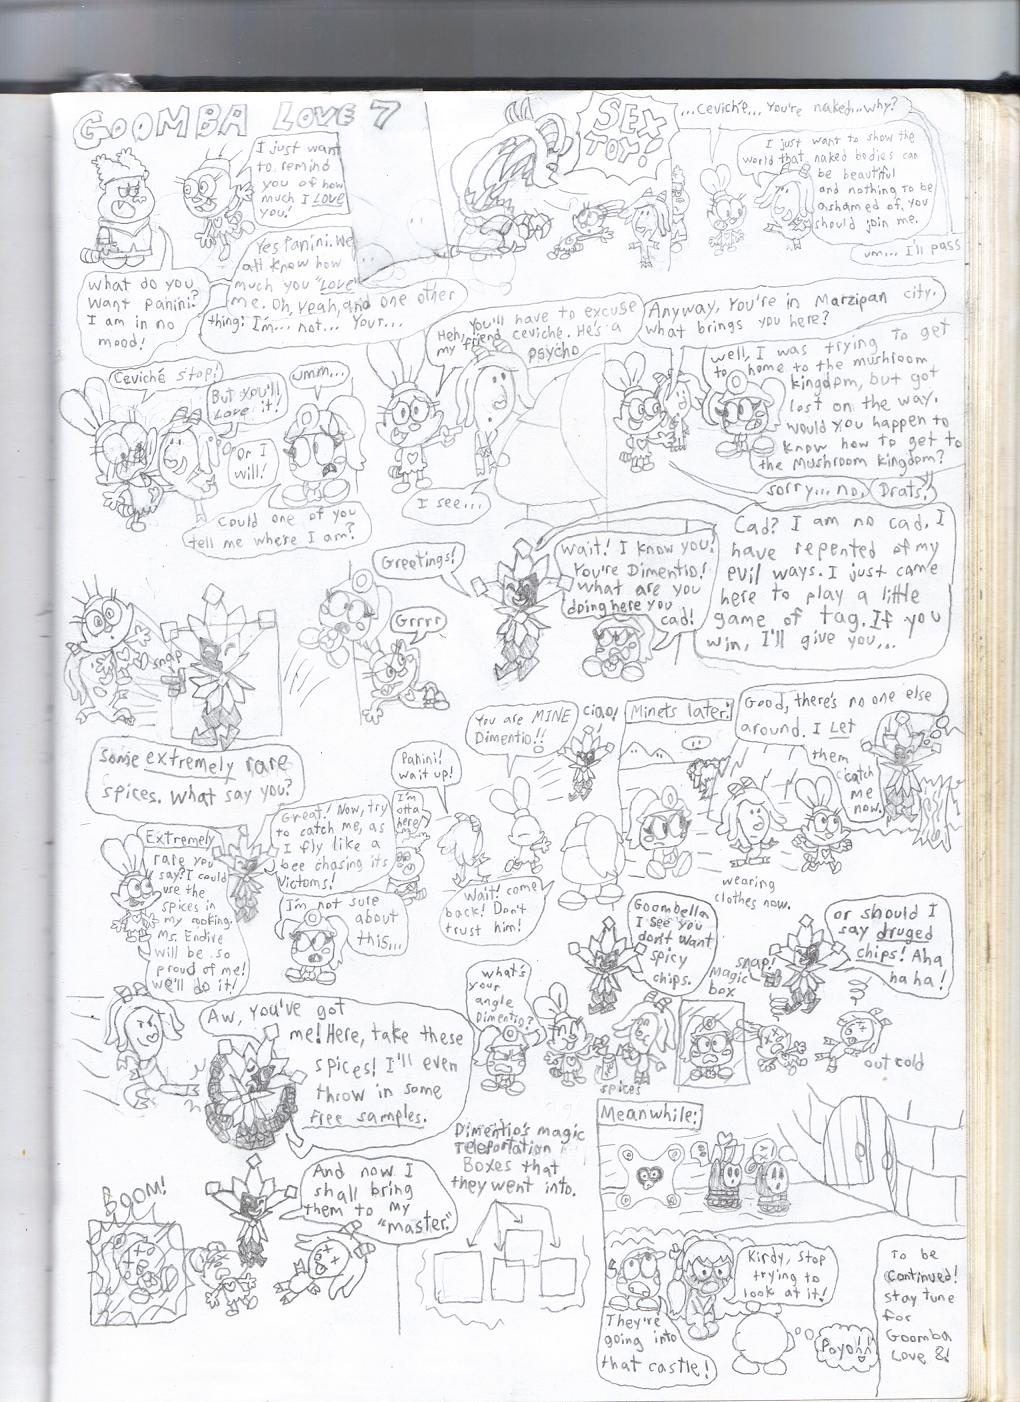 GOOMBA LOVE 7
I just want
to remind
you of how
much I LOVE
you!
what do you
want Panini?
I am in no
mood!
Yes Panini. We
all know how
much you "LOVE"
me. Oh, yeah, and one other
thing: I'm... not... Your...
SEX
TOY!
...Ceviché... You're naked...why?
I just want to show the
world that naked bodies can
be beautiful
and nothing to be
ashamed of. You
should join me.
um... I'll pass
Ceviché stop!
But you'll
Love it!
Or I
will!
umm...
Could one of you
tell me where I am?
Heh, You'll have to excuse
my friend Ceviché. He's a
psycho
I see...
Anyway, You're in Marzipan city.
what brings you here?
well, I was trying to get
to home to the mushroom
kingdom, but got
lost on the way.
would you happen to
know how to get to
the Mushroom kingdom?
sorry... no.
Drats!
snap
Grrrr
Greetings!
Wait! I know you!
You're Dimentio!
what are you
doing here you
cad!
Cad? I am no cad. I
have repented of my
evil ways. I just came
here to play a little
game of tag. If you
win, I'll give you...
Some extremely rare
spices. What say you?
Extremely
rare you
say? I could
use the
spices in
my cooking.
Ms. Endive
will be so
proud of me!
We'll do it!
Great! Now, try
to catch me, as
I fly like a
bee chasing its
victoms!
I'm not sure
about
this...
I'm
otta
here!
Panini!
wait up!
You are MINE
Dimentio!!
ciao!
Wait! come
back! Don't
trust him!
Minets later:
Good, there's no one else
around. I Let
them
catch
me
now.
wearing
clothes now.
Aw, you've got
me! Here, take these
spices! I'll even
throw in some
Free samples.
what's
your
angle
Dimentio?
spices
Goombella
I see you
don't want
spicy
chips.
magic
box
snap!
or should I
say druged
chips! Aha
ha ha!
out cold
BOOM!
And now I
shall bring
them to my
"master."
Dimentio's magic
Teleportation
Boxes that
they went into.
Meanwhile:
They're
going into
that castle!
Kirdy, stop
trying to
look at it!
Poyo!!
To be
continued!
stay tune
for
Goomba
Love 8!